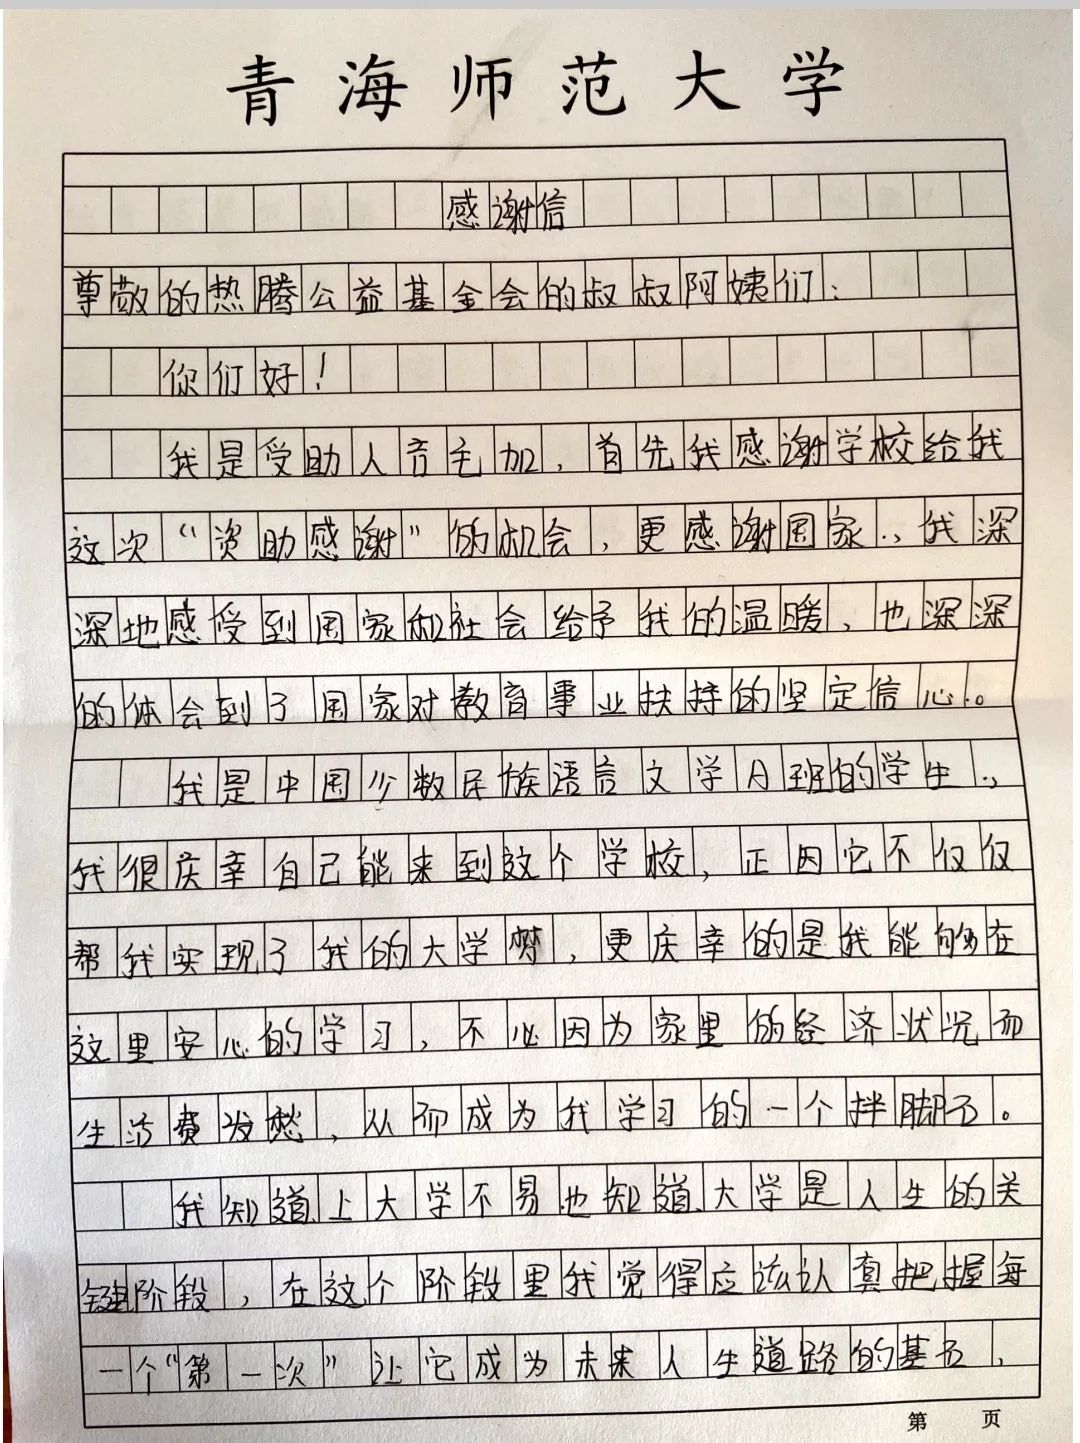 青海师范大学
感谢信
尊敬的热腾公益基金会的叔叔阿姨们：
你们好！
我是受助人毛加，首先我感谢学校给我
这次“资助感谢”的机会，更感谢国家.，我深
深地感受到国家和社会给予我的温暖，也深深
的体会到了国家对教育事业扶持的坚定信心.。
我是中国少数民族语言文学A班的学生.，
我很庆幸自己能来到这个学校，正因它不仅仅
帮我实现了我的大学梦，更庆幸的是我能够在
这里安心的学习，不必因为家里的经济状况而
生活费发愁，从而成为我学习的一个拌脚石。
我知道上大学不易也知道大学是人生的关
键阶段，在这个阶段里我觉得应该认真把握每
一个“第一次”让它成为未来人生道路的基石，
第 页